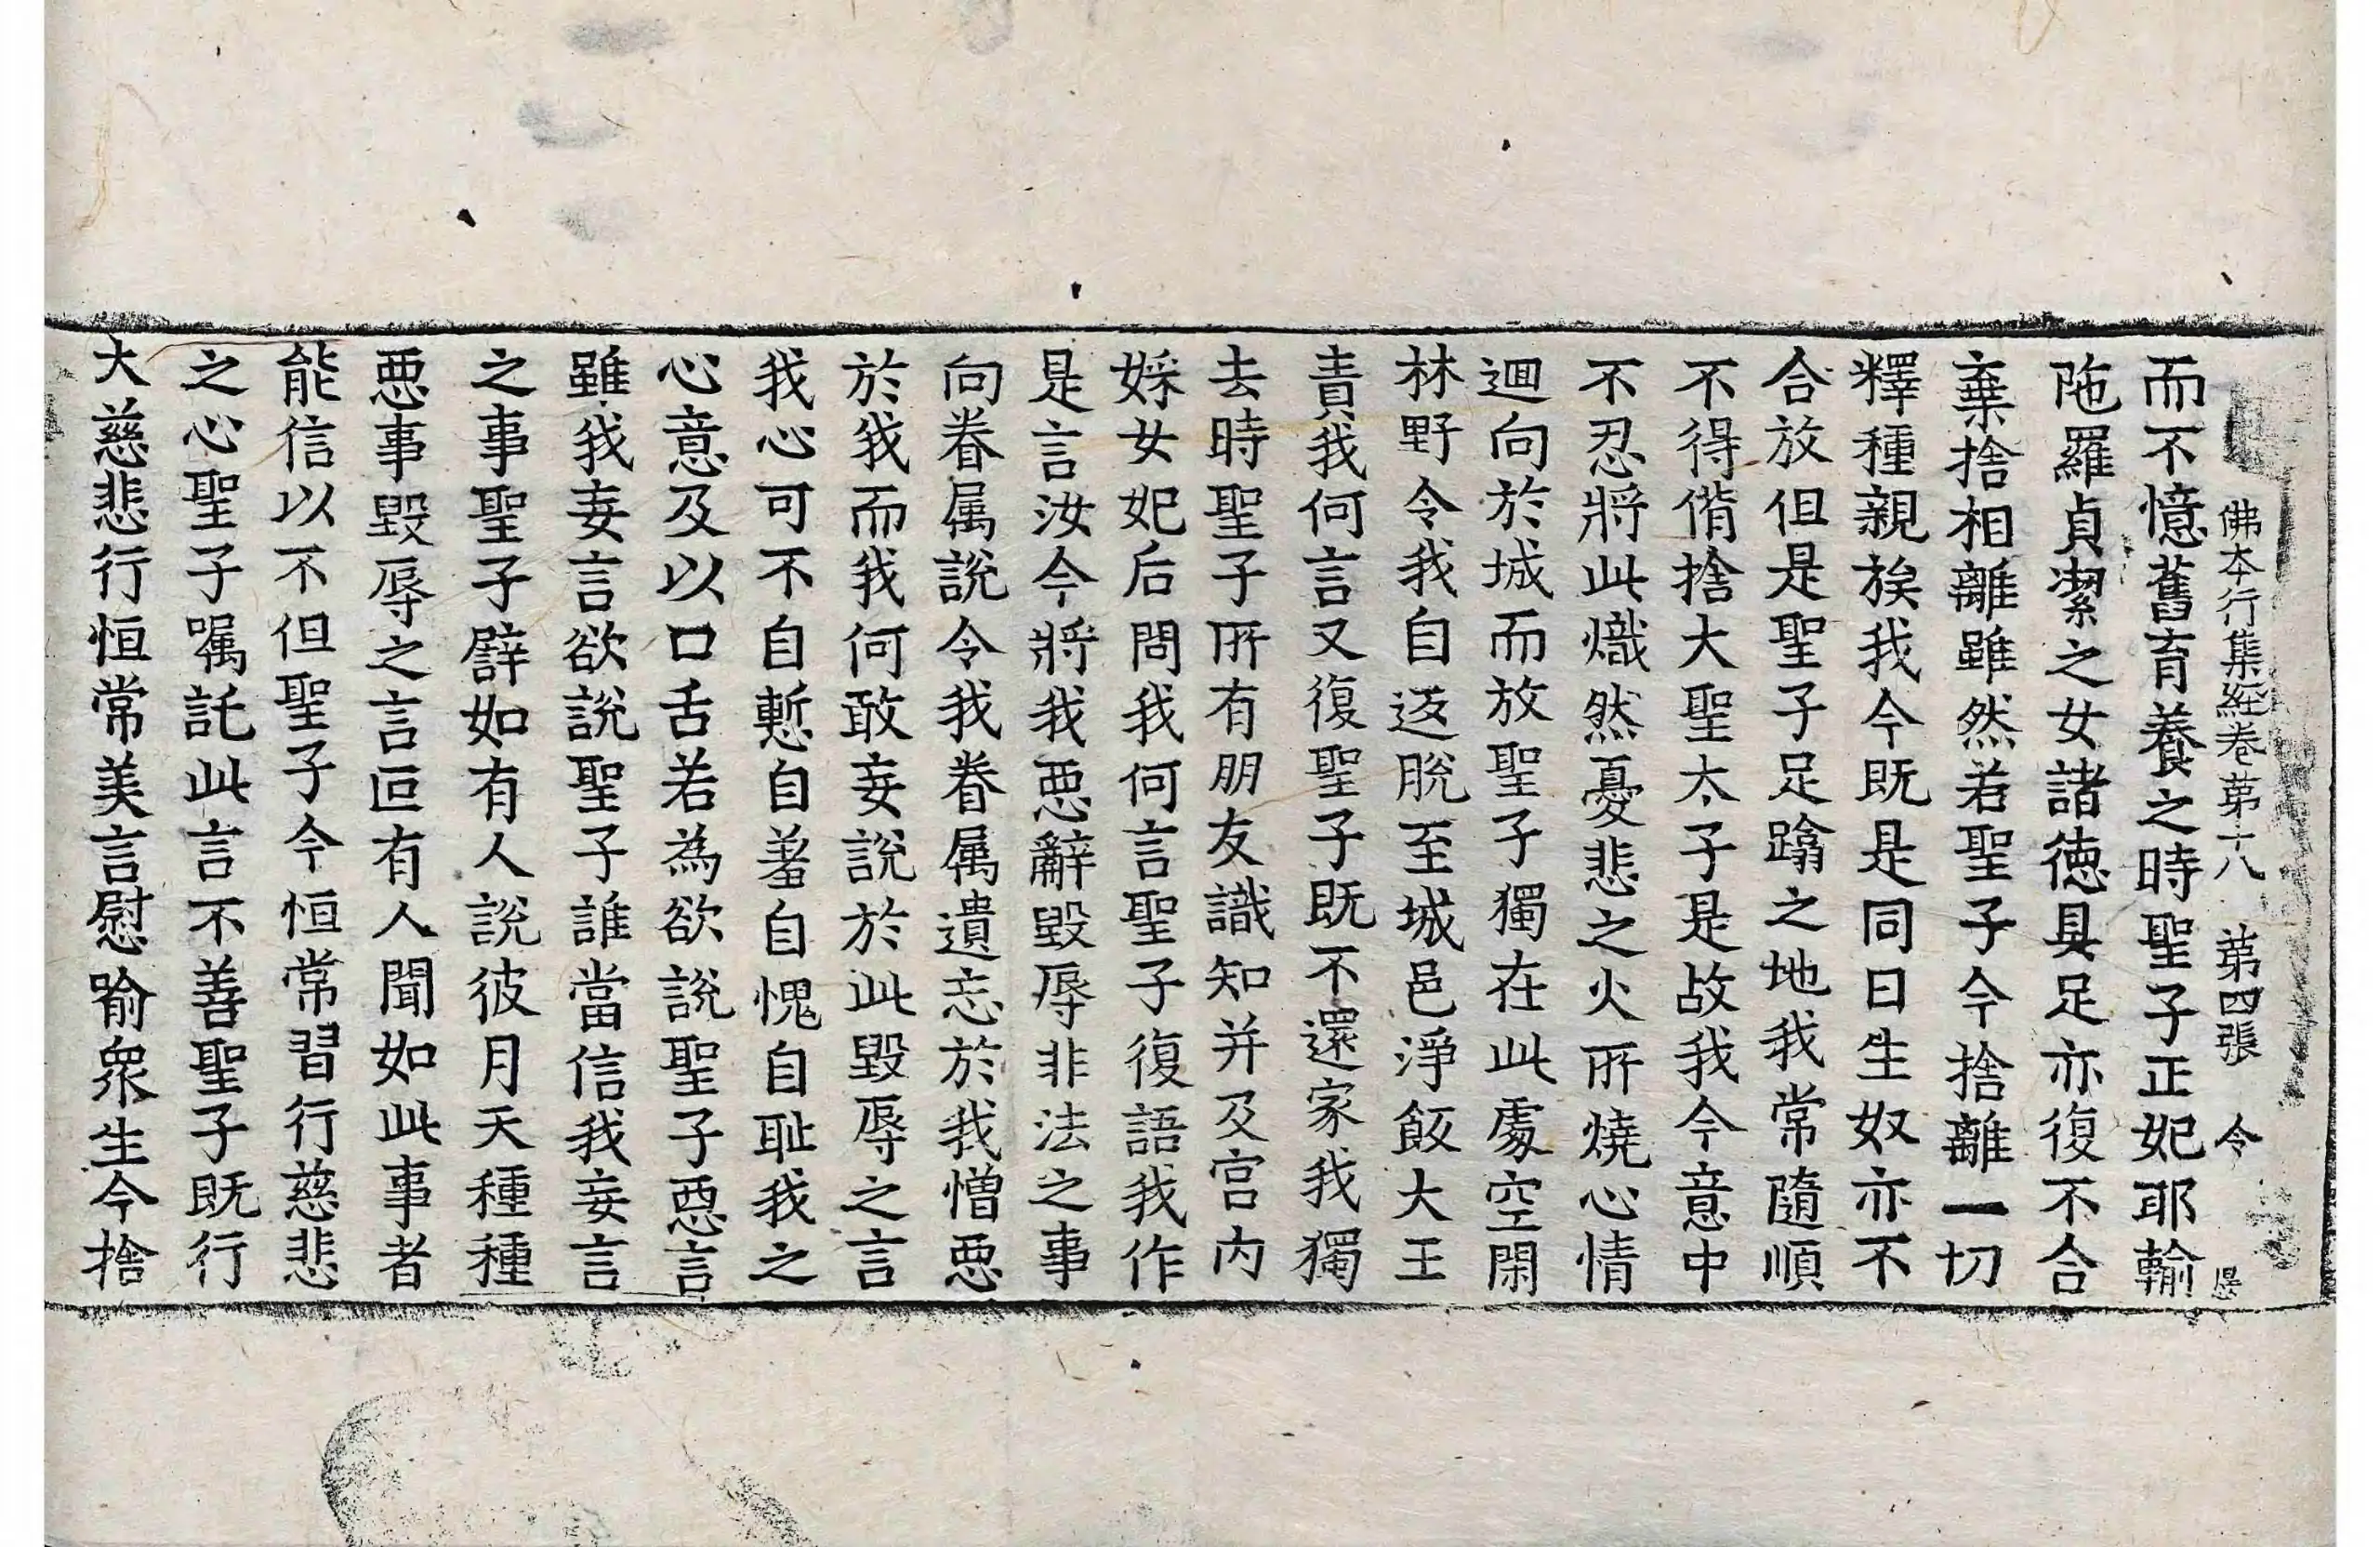 佛本行集經卷苐十八 苐四張 令
而不憶舊育養之時聖子正妃耶輸
陁羅貞潔之女諸德具足亦復不合
棄捨相離雖然若聖子今捨離一切
釋種親族我今既是同日生奴亦不
合放但是聖子足蹹之地我常隨順
不得偝捨大聖太子是故我今意中
不忍將此熾然憂悲之火所燒心情
迴向於城而放聖子獨在此處空閑
林野令我自返脫至城邑淨飯大王
責我何言又復聖子既不還家我獨
去時聖子所有朋友識知并及宮內
婇女妃后問我何言聖子復語我作
是言汝今將我惡辭毀辱非法之事
向眷属說令我眷属遺忘於我憎惡
於我而我何敢妄說於此毀辱之言
我心可不自慙自羞自愧自耻我之
心意及以口舌若為欲說聖子惡言
雖我妄言欲說聖子誰當信我妄言
之事聖子譬如有人說彼月天種種
惡事毀辱之言叵有人聞如此事者
能信以不但聖子今恒常習行慈悲
之心聖子嘱託此言不善聖子既行
大慈悲行恒常美言慰喻衆生今捨